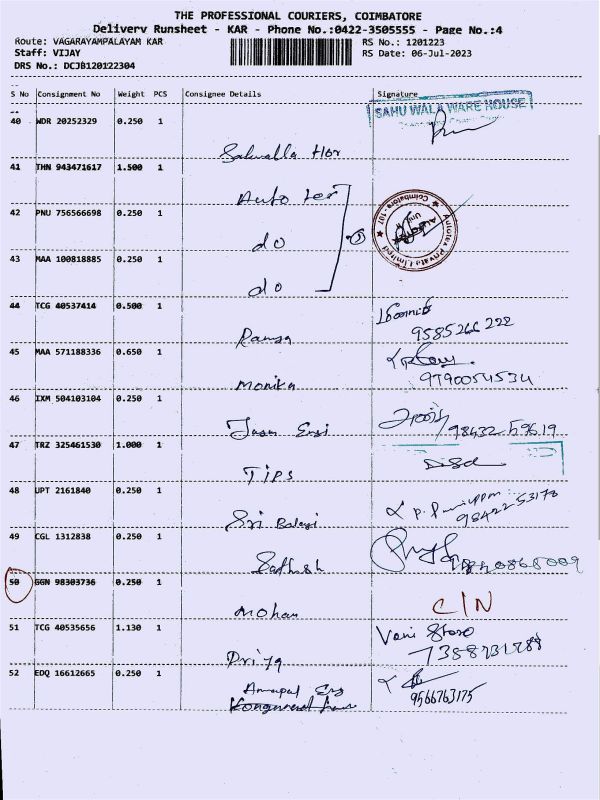 THE PROFESSIONAL COURIERS, COIMBATORE
Delivery Runsheet - KAR - Phone No.:0422-3505555 - Page No.:4
Route: VAGARAYAMPALAYAM KAR RS No.: 1201223
Staff: VIJAY RS Date: 06-Jul-2023
DRS No.: DCJB120122304
S No Consignment No Weight PCS Consignee Details Signature
40 WDR 20252329 0.250 1 SAHU WALA WARE HOUSE
41 THN 943471617 1.500 1
Auto tex
42 PNU 756566698 0.250 1 Autotex Private Limited Coimbatore - 107
do
43 MAA 100818885 0.250 1
do
44 TCG 40537414 0.500 1
9585266 222
45 MAA 571188336 0.650 1
Monika 9790054534
46 IXM 504103104 0.250 1
98432 59619
47 TRZ 325461530 1.000 1
TIPS
48 UPT 2161840 0.250 1
Sri Balaji 98422 53178
49 CGL 1312838 0.250 1
Sathish
50 GGN 98303736 0.250 1
Mohan C/N
51 TCG 40535656 1.130 1 Vani Store
Priya
52 EDQ 16612665 0.250 1
9566763175